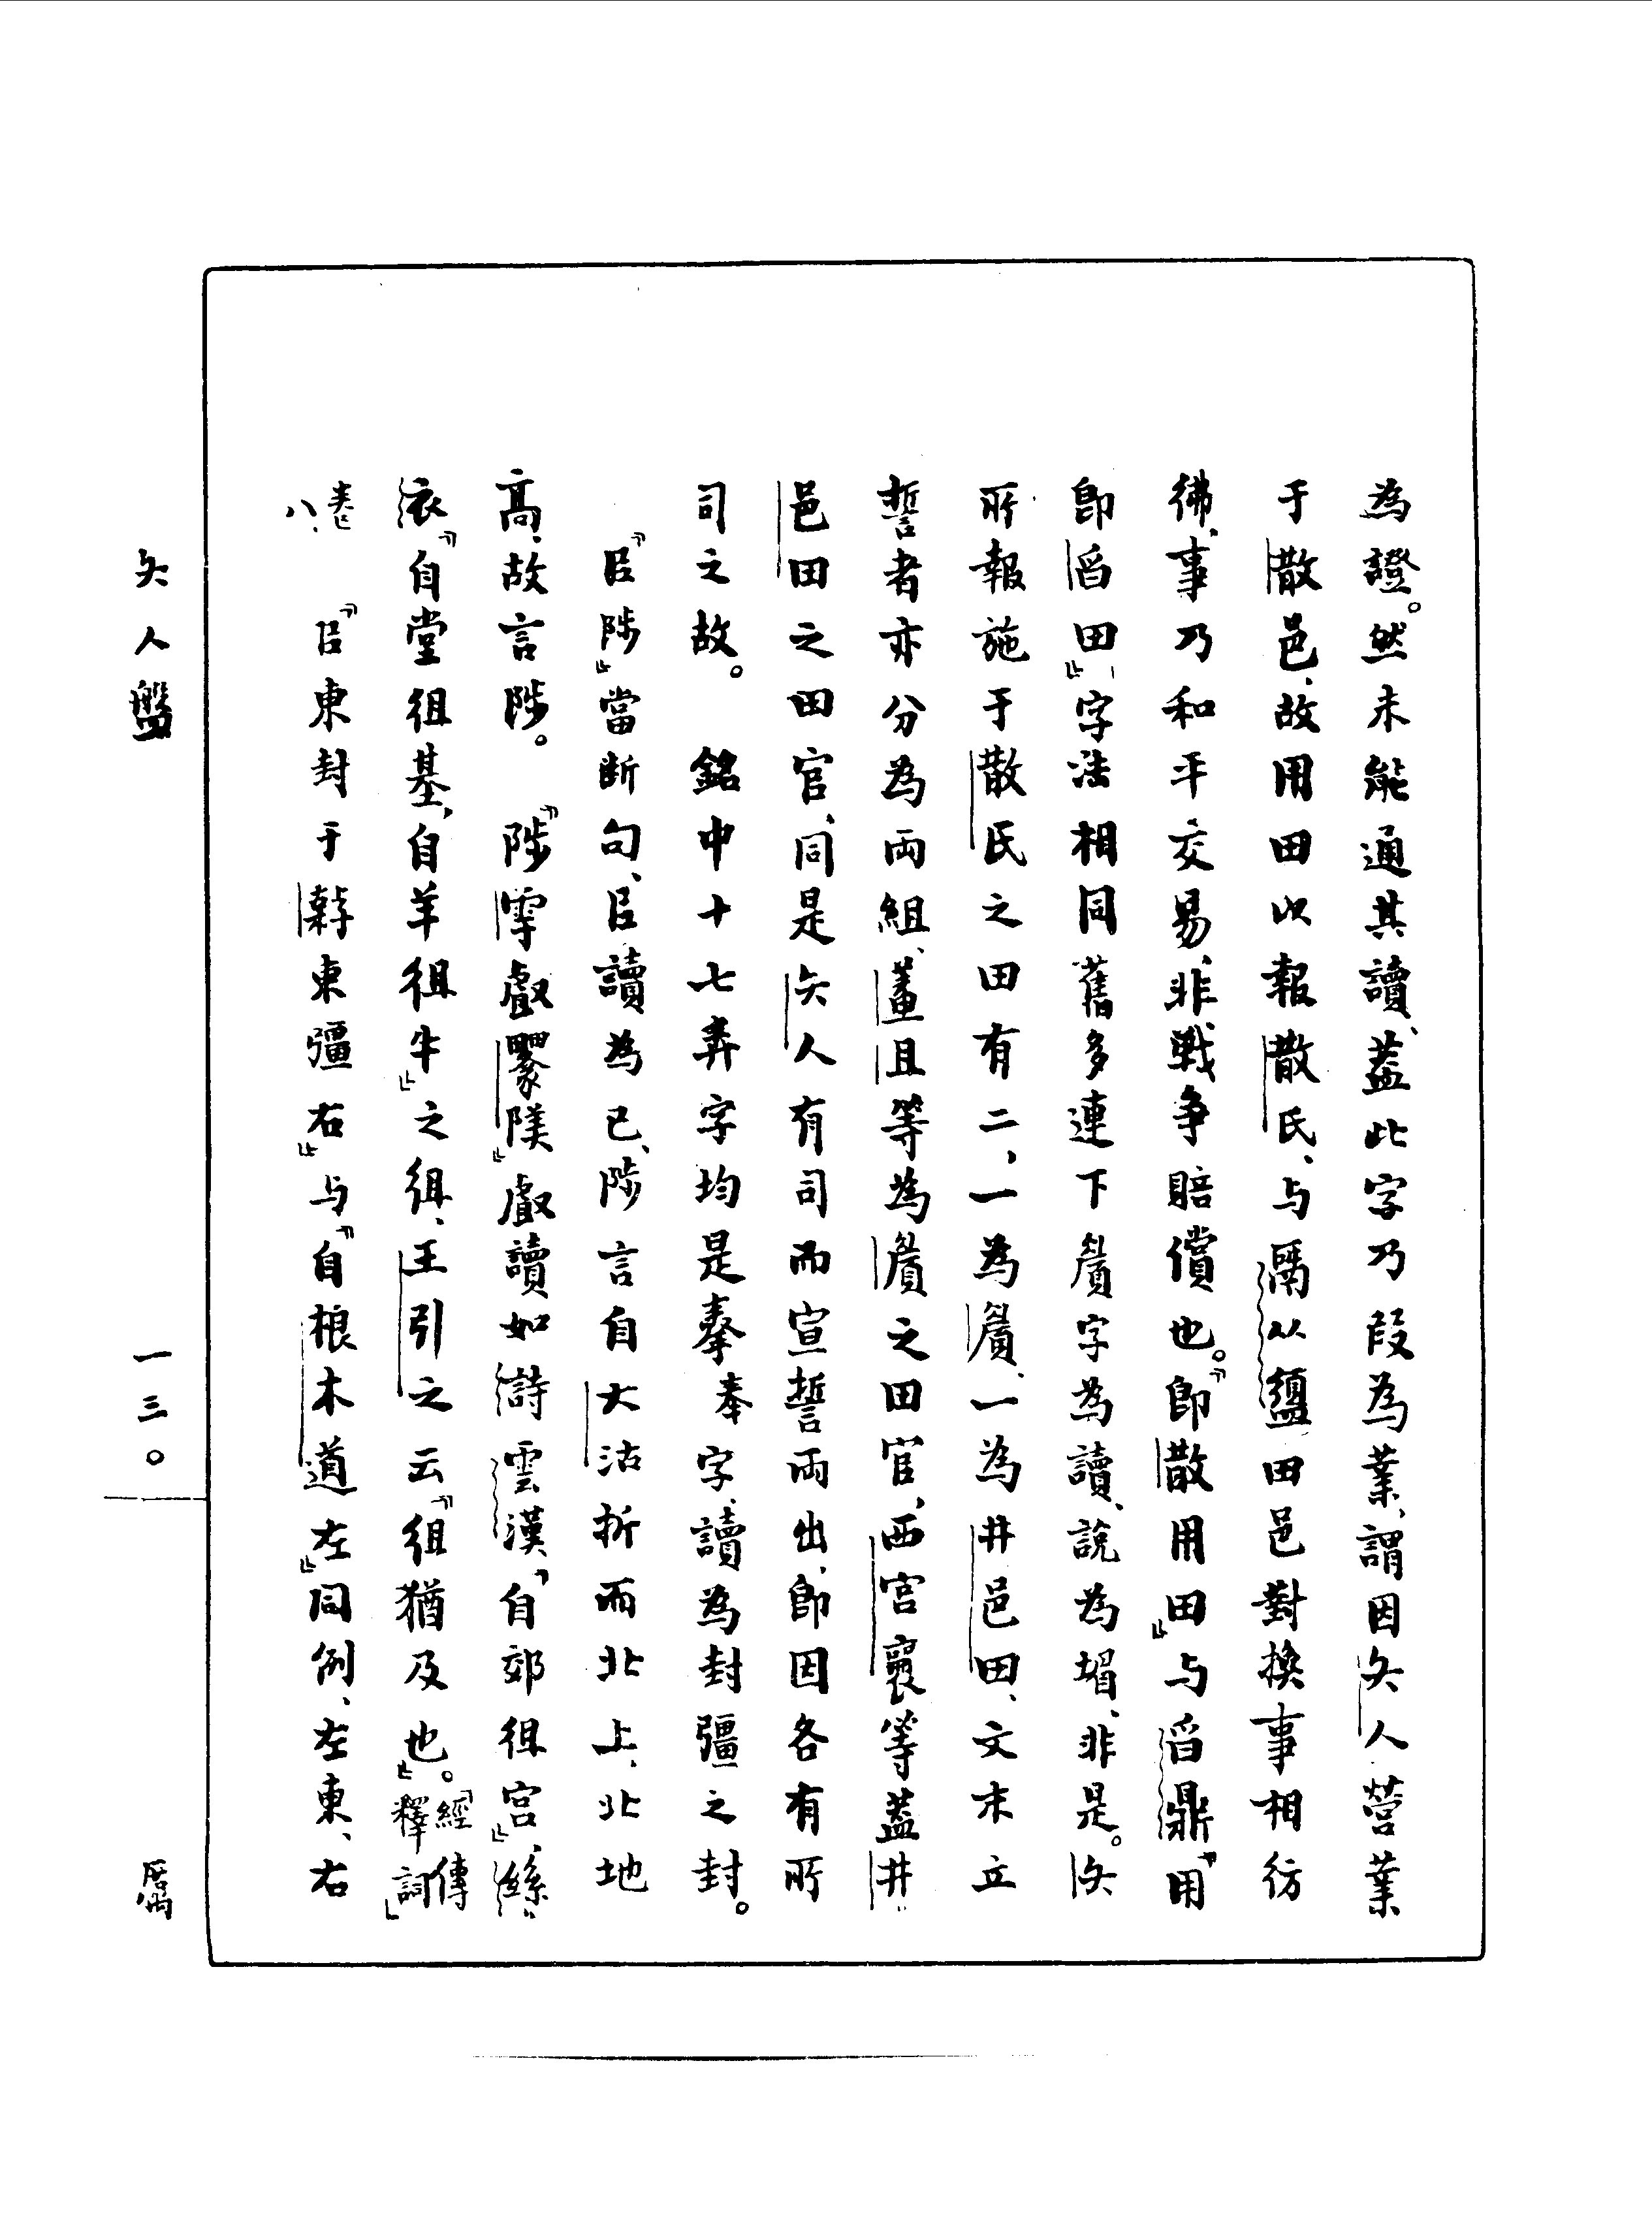 為證。然未能通其讀、蓋此字乃叚為業、謂因夨人營業
于散邑、故用田以報散氏、与鬲从盨田邑對換事相彷
彿、事乃和平交易、非戰争賠償也。『即散用田』与舀鼎『用
即舀田』字法相同舊多連下字為讀、說為堳、非是。夨
所報施于散氏之田有二，一為、一為井邑田、文末立
誓者亦分為兩組、且等為之田官，西宮襄等蓋井
邑田之田官、同是夨人有司而宣誓兩出、即因各有所
司之故。　銘中十七弄字均是奉字、讀為封疆之封。
『㠯陟』當断句、㠯讀為已、陟言自大沽折而北上、北地
高、故言陟。　『陟雩𠭯𨻺』𠭯讀如詩雲漢『自郊徂宮』、絲
衣『自堂徂基，自羊徂牛』之徂、王引之云『徂猶及也』。『經傳釋詞』
卷八、　『㠯東封于東彊右』与『自根木道左』同例、左東、右
夨人盤
一三〇
厲